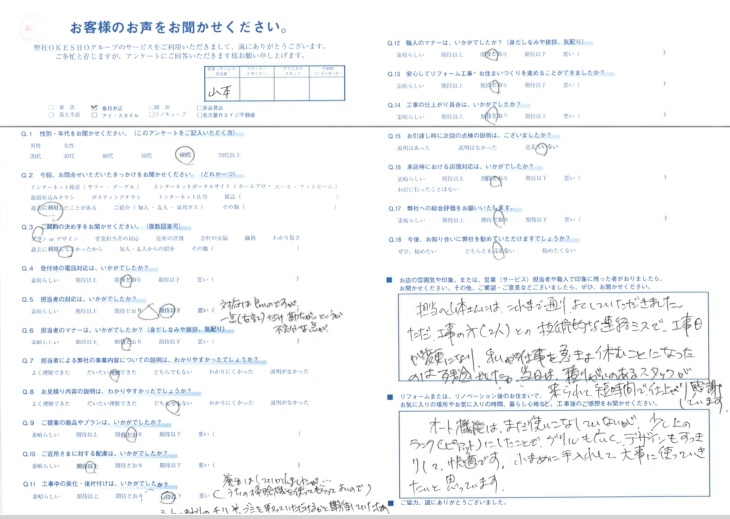 お客様のお声をお聞かせください。
弊社OKESHOグループのサービスをご利用いただきまして、誠にありがとうございます。
ご多忙と存じますが、アンケートにご回答いただきます様お願い申し上げます。
山本
本店 春日井店 緑店 多治見店
名古屋東店 アイ・スタイル リノキューブ 名古屋ロエイジ不動産
Q.1 性別・年代をお聞かせください。(このアンケートをご記入いただく方)
男性 女性
20代 30代 40代 50代 60代 70代以上
Q.2 今回、お問合せいただいたきっかけをお聞かせください。(どれか一つ)
インターネット検索(ヤフー・グーグル) インターネットポータルサイト(ホームプロ・エーセ・アットホーム)
新聞折込みチラシ ポスティングチラシ インターネット広告 雑誌( )
過去に利用したことがある ご紹介(知人・友人・東邦ガス) その他( )
Q.3 ご契約の決め手をお聞かせください。(複数回答可)
プラン or デザイン 営業担当者の対応 近所の評判 会社の実績 価格 わかり易さ
過去に利用してよかったから 知人・友人からの紹介 その他( )
Q.4 受付時の電話対応は、いかがでしたか?
素晴らしい 期待以上 期待どおり 期待以下 悪い( )
Q.5 担当者の対応は、いかがでしたか?
素晴らしい 期待以上 期待どおり 期待以下 悪い(
対応は良いのですが、
Q.6 担当者のマナーは、いかがでしたか?(身だしなみや挨拶、気配り)
素晴らしい 期待以上 期待どおり 期待以下 悪い( )
Q.7 担当者による弊社の事業内容についての説明は、わかりやすかったでしょうか?
よく理解できた だいたい理解できた どちらでもない わかりにくかった 説明がなかった
Q.8 お見積り内容の説明は、わかりやすかったでしょうか?
よく理解できた だいたい理解できた どちらでもない わかりにくかった 説明がなかった
Q.9 ご提案の商品やプランは、いかがでしたか?
素晴らしい 期待以上 期待どおり 期待以下 悪い( )
Q.10 ご近所さまに対する配慮は、いかがでしたか?
素晴らしい 期待以上 期待どおり 期待以下 悪い( )
Q.11 工事中の美化・後片付けは、いかがでしたか?
素晴らしい 期待以上 期待どおり 期待以下 悪い(
(うちの掃除機を使ってもらってよいので)
Q.12 職人のマナーは、いかがでしたか?(身だしなみや挨拶、気配り)
素晴らしい 期待以上 期待どおり 期待以下 悪い( )
Q.13 安心してリフォーム工事・お住まいづくりを進めることができましたか?
素晴らしい 期待以上 期待どおり 期待以下 悪い( )
Q.14 工事の仕上がり具合は、いかがでしたか?
素晴らしい 期待以上 期待どおり 期待以下 悪い( )
Q.15 お引渡し時に次回の点検の説明は、ございましたか?
説明はあった 説明はなかった 覚えていない
Q.16 来店時における店頭対応は、いかがでしたか?
素晴らしい 期待以上 期待どおり 期待以下 悪い( )
お店に行ったことはない
Q.17 弊社への総合評価をお願いいたします。
素晴らしい 期待以上 期待どおり 期待以下 悪い( )
Q.18 今後、お知り合いに弊社を勧めていただけますでしょうか?
ぜひ、勧めたい どちらともいえない 勧めたくない
■ お店の雰囲気や印象、または、営業(サービス)担当者や職人で印象に残った者がおりましたら、
お聞かせください。その他、ご要望・ご意見などございましたら、ぜひ、お聞かせください。
担当の山本さんには、これまで通り、よくしていただきました。
ただ、工事の方(2人)との技術的な連絡ミスで、工事日
が変更になり、私が仕事を急きょ休むことになった
のは残念でした。当日は、頼りがいのあるスタッフが
来られて短時間で仕上がり感謝
しています。
■ リフォームまたは、リノベーション後のお住まいで、
お気に入りの場所やお気に入りの時間、暮らし心地など、工事後のご感想をお聞かせください。
オート機能は、まだ使いこなしていないが、少し上の
ランク(ピアット)にしたことで、グリルも広く、デザインもすっき
りして、快適です。小まめに手入れして大事に使っていき
たいと思っています。
■ ご協力、誠にありがとうございました。